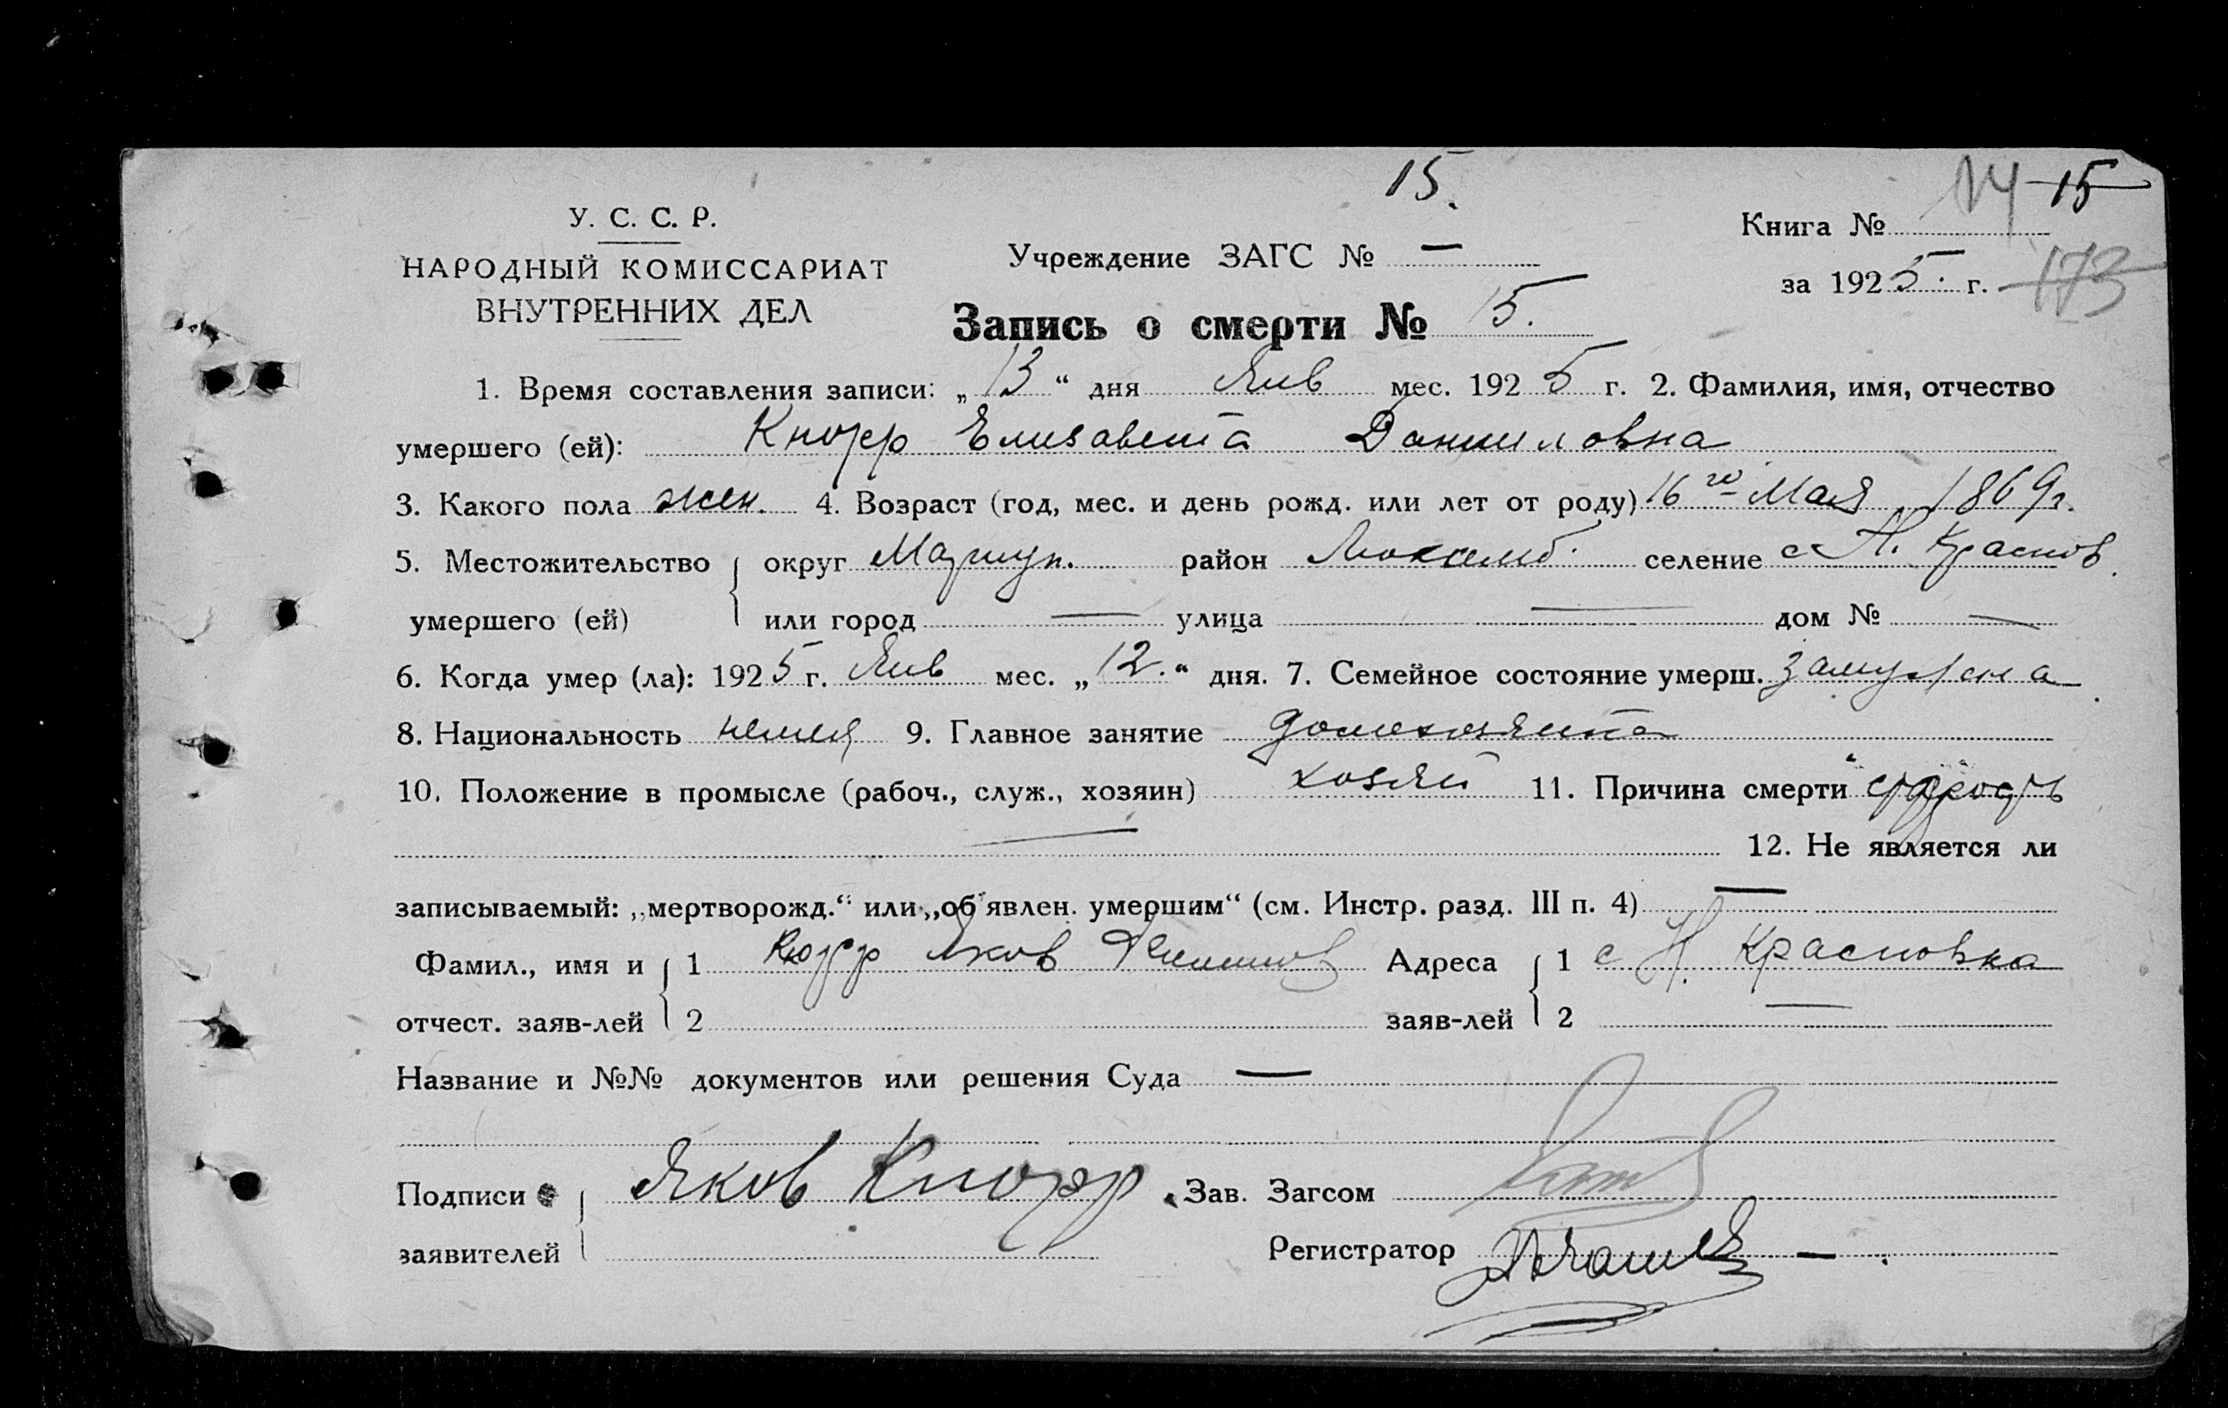 15.
14 15
У. С. С. Р.
Книга №
НАРОДНЫЙ КОМИССАРИАТ
Учреждение ЗАГС № —
за 1925 г. 173
ВНУТРЕННИХ ДЕЛ
Запись о смерти № 15.
1. Время составления записи: „13“ дня Янв мес. 1925 г. 2. Фамилия, имя, отчество
умершего (ей): Кнорр Елизавета Данииловна
3. Какого пола жен. 4. Возраст (год, мес. и день рожд. или лет от роду) 16го Мая 1869г.
5. Местожительство округ Мариуп. район Люксемб. селение с Н. Краснов.
умершего (ей) или город — улица — дом № —
6. Когда умер (ла): 1925 г. Янв мес. „12.“ дня. 7. Семейное состояние умерш. замужна
8. Национальность немец 9. Главное занятие домохозяйка
10. Положение в промысле (рабоч., служ., хозяин) хозяй 11. Причина смерти старость
— 12. Не является ли
записываемый: „мертворожд.“ или „об'явлен. умершим“ (см. Инстр. разд. III п. 4) —
Фамил., имя и 1 Кнорр Яков Адреса 1 с Н. Красновка
отчест. заяв-лей 2 заяв-лей 2 —
Название и №№ документов или решения Суда —
Подписи Яков Кнорр Зав. Загсом
заявителей Регистратор